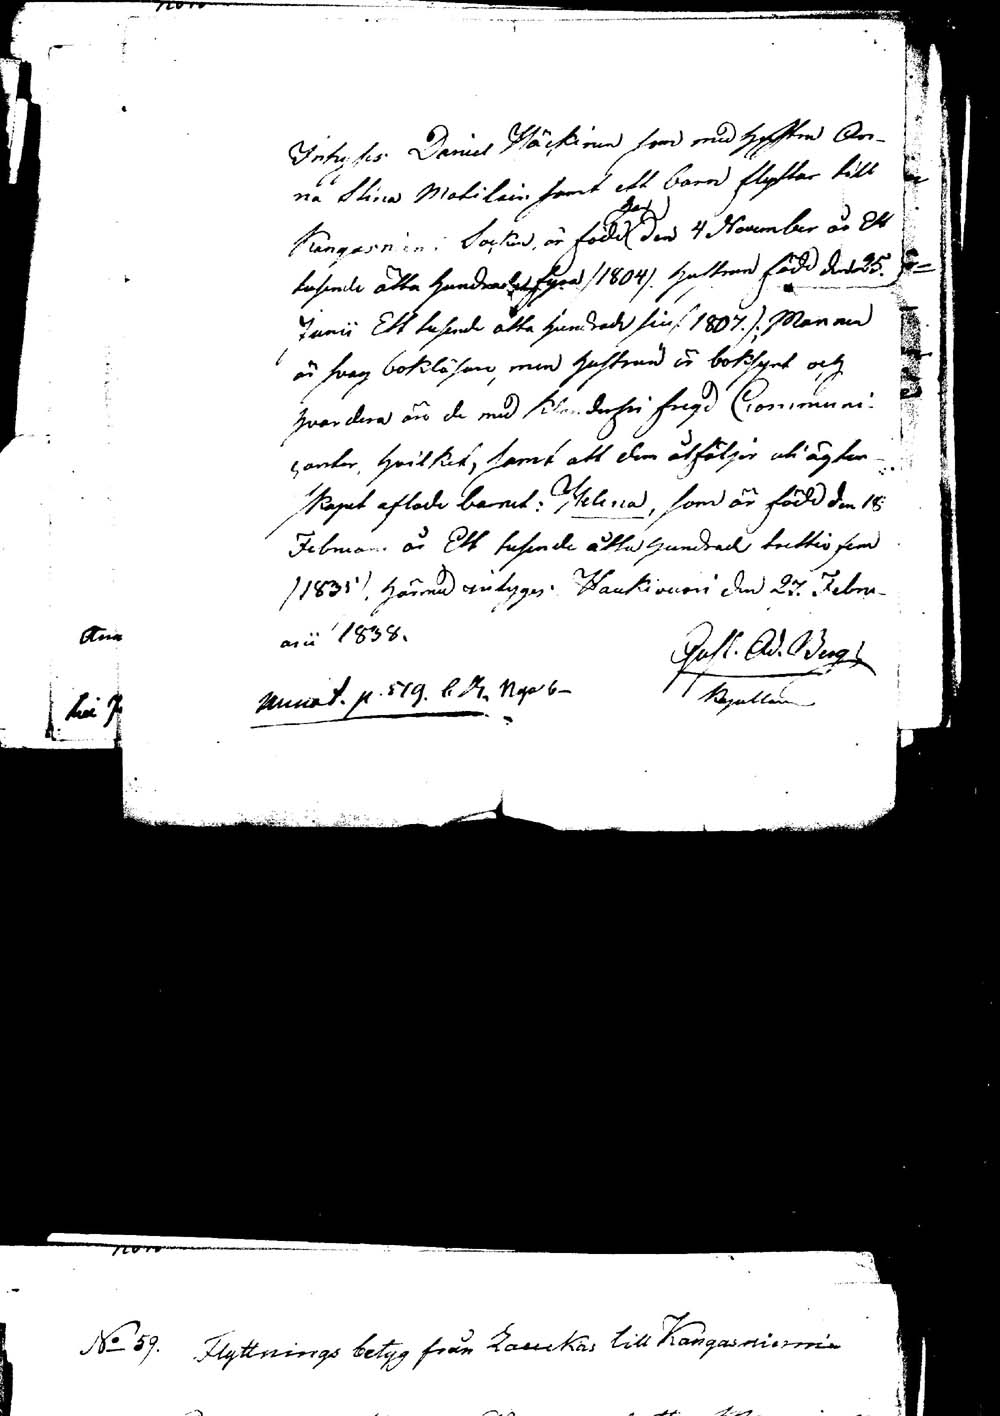 Inhyses Daniel Häckinen som med hustru An-
na Stina Matilain samt ett barn flyttar till
Kangasniemi Socken, är född här den 4 November år Ett
tusende åtta hundrade fyra /1804/. hustrun född den 25.
Junii Ett tusende åtta hundrade sju /1807./, Mannen
är svag bokläsare, men hustrun är boksynt och
hvardera äro de med klanderfri fregd Communi-
canter, hvilket, samt att dem åtföljer uti ägten-
skapet aflade barnet: Helena, som är född den 18
Februarii år Ett tusende åtta hundrade trettio fem
/1835/, härmed intygas. Haukivuori den 27. Febru-
arii 1838.
Gust. Ad. Berg
Kapellan
p. 519.
Ana
No 59. Flyttnings betyg från Laukas till Kangasniemi